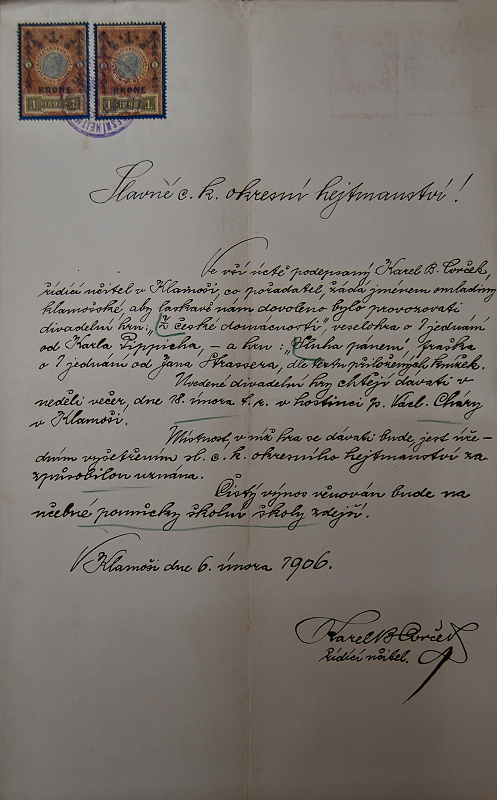 1
KRONE
1 1898 1
1
KRONE
1 1898 1
Slavné c. k. okresní hejtmanství!
Ve vší úctě podepsaný Karel B. Cvrček,
řídící učitel v Klamoši, co pořadatel, žádá jménem omladiny
klamošské, aby laskavě nám dovoleno bylo provozovati
divadelní hru: „Z české domácnosti", veselohra o 1 jednání
od Karla Pippicha, – a hru: „Sluha pánem" fraška
o 1 jednání od Jana Strassera, dle textu přiložených knížek.
Uvedené divadelní hry chtějí dávati v
neděli večer, dne 18. února t. r. v hostinci p. Václ. Cháry
v Klamoši.
Místnost, v níž hra se dávati bude, jest úře-
dním vyšetřením sl. c. k. okresního hejtmanství za
způsobilou uznána.
Čistý výnos věnován bude na
učebné pomůcky školní školy zdejší.
V Klamoši dne 6. února 1906.
Karel B Cvrček
řídící učitel.